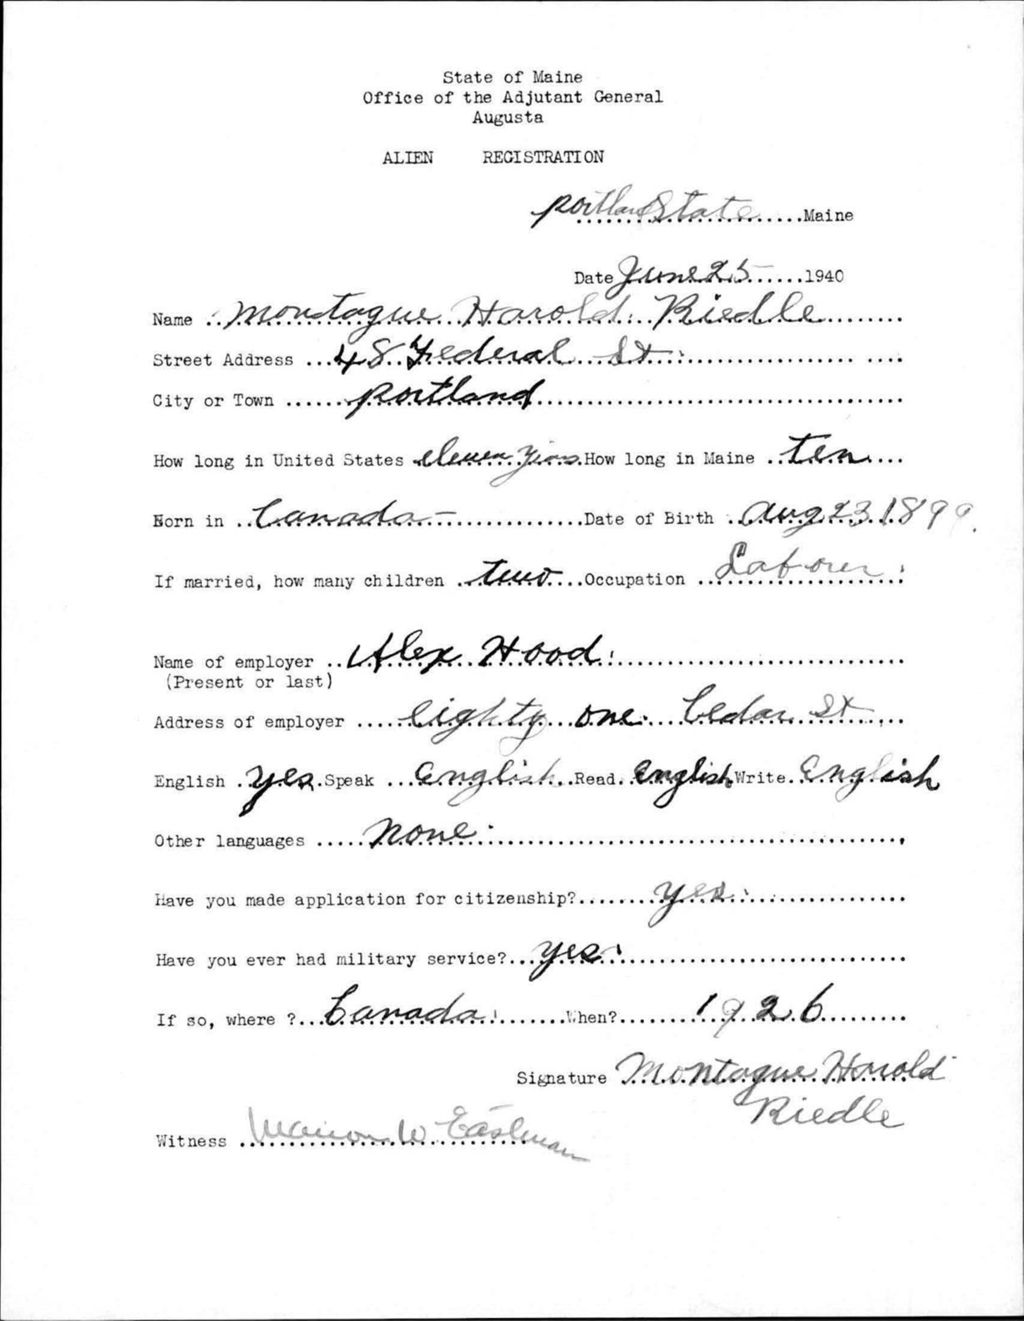 State of Maine
Office of the Adjutant General
Augusta
ALIEN REGISTRATION
Portland State Maine
Date June 25 1940
Name Montague Harold Riedle
Street Address 48 Federal St
City or Town Portland
How long in United States eleven years How long in Maine ten
Born in Canada Date of Birth Aug 23 1899
If married, how many children two Occupation Labourer
Name of employer Alex Hood
(Present or last)
Address of employer eighty one Cedar St
English yes Speak English Read English Write English
Other languages none
Have you made application for citizenship? yes
Have you ever had military service? yes
If so, where ? Canada When? 1926
Signature Montague Harold
Riedle
Witness Marion W Eastman